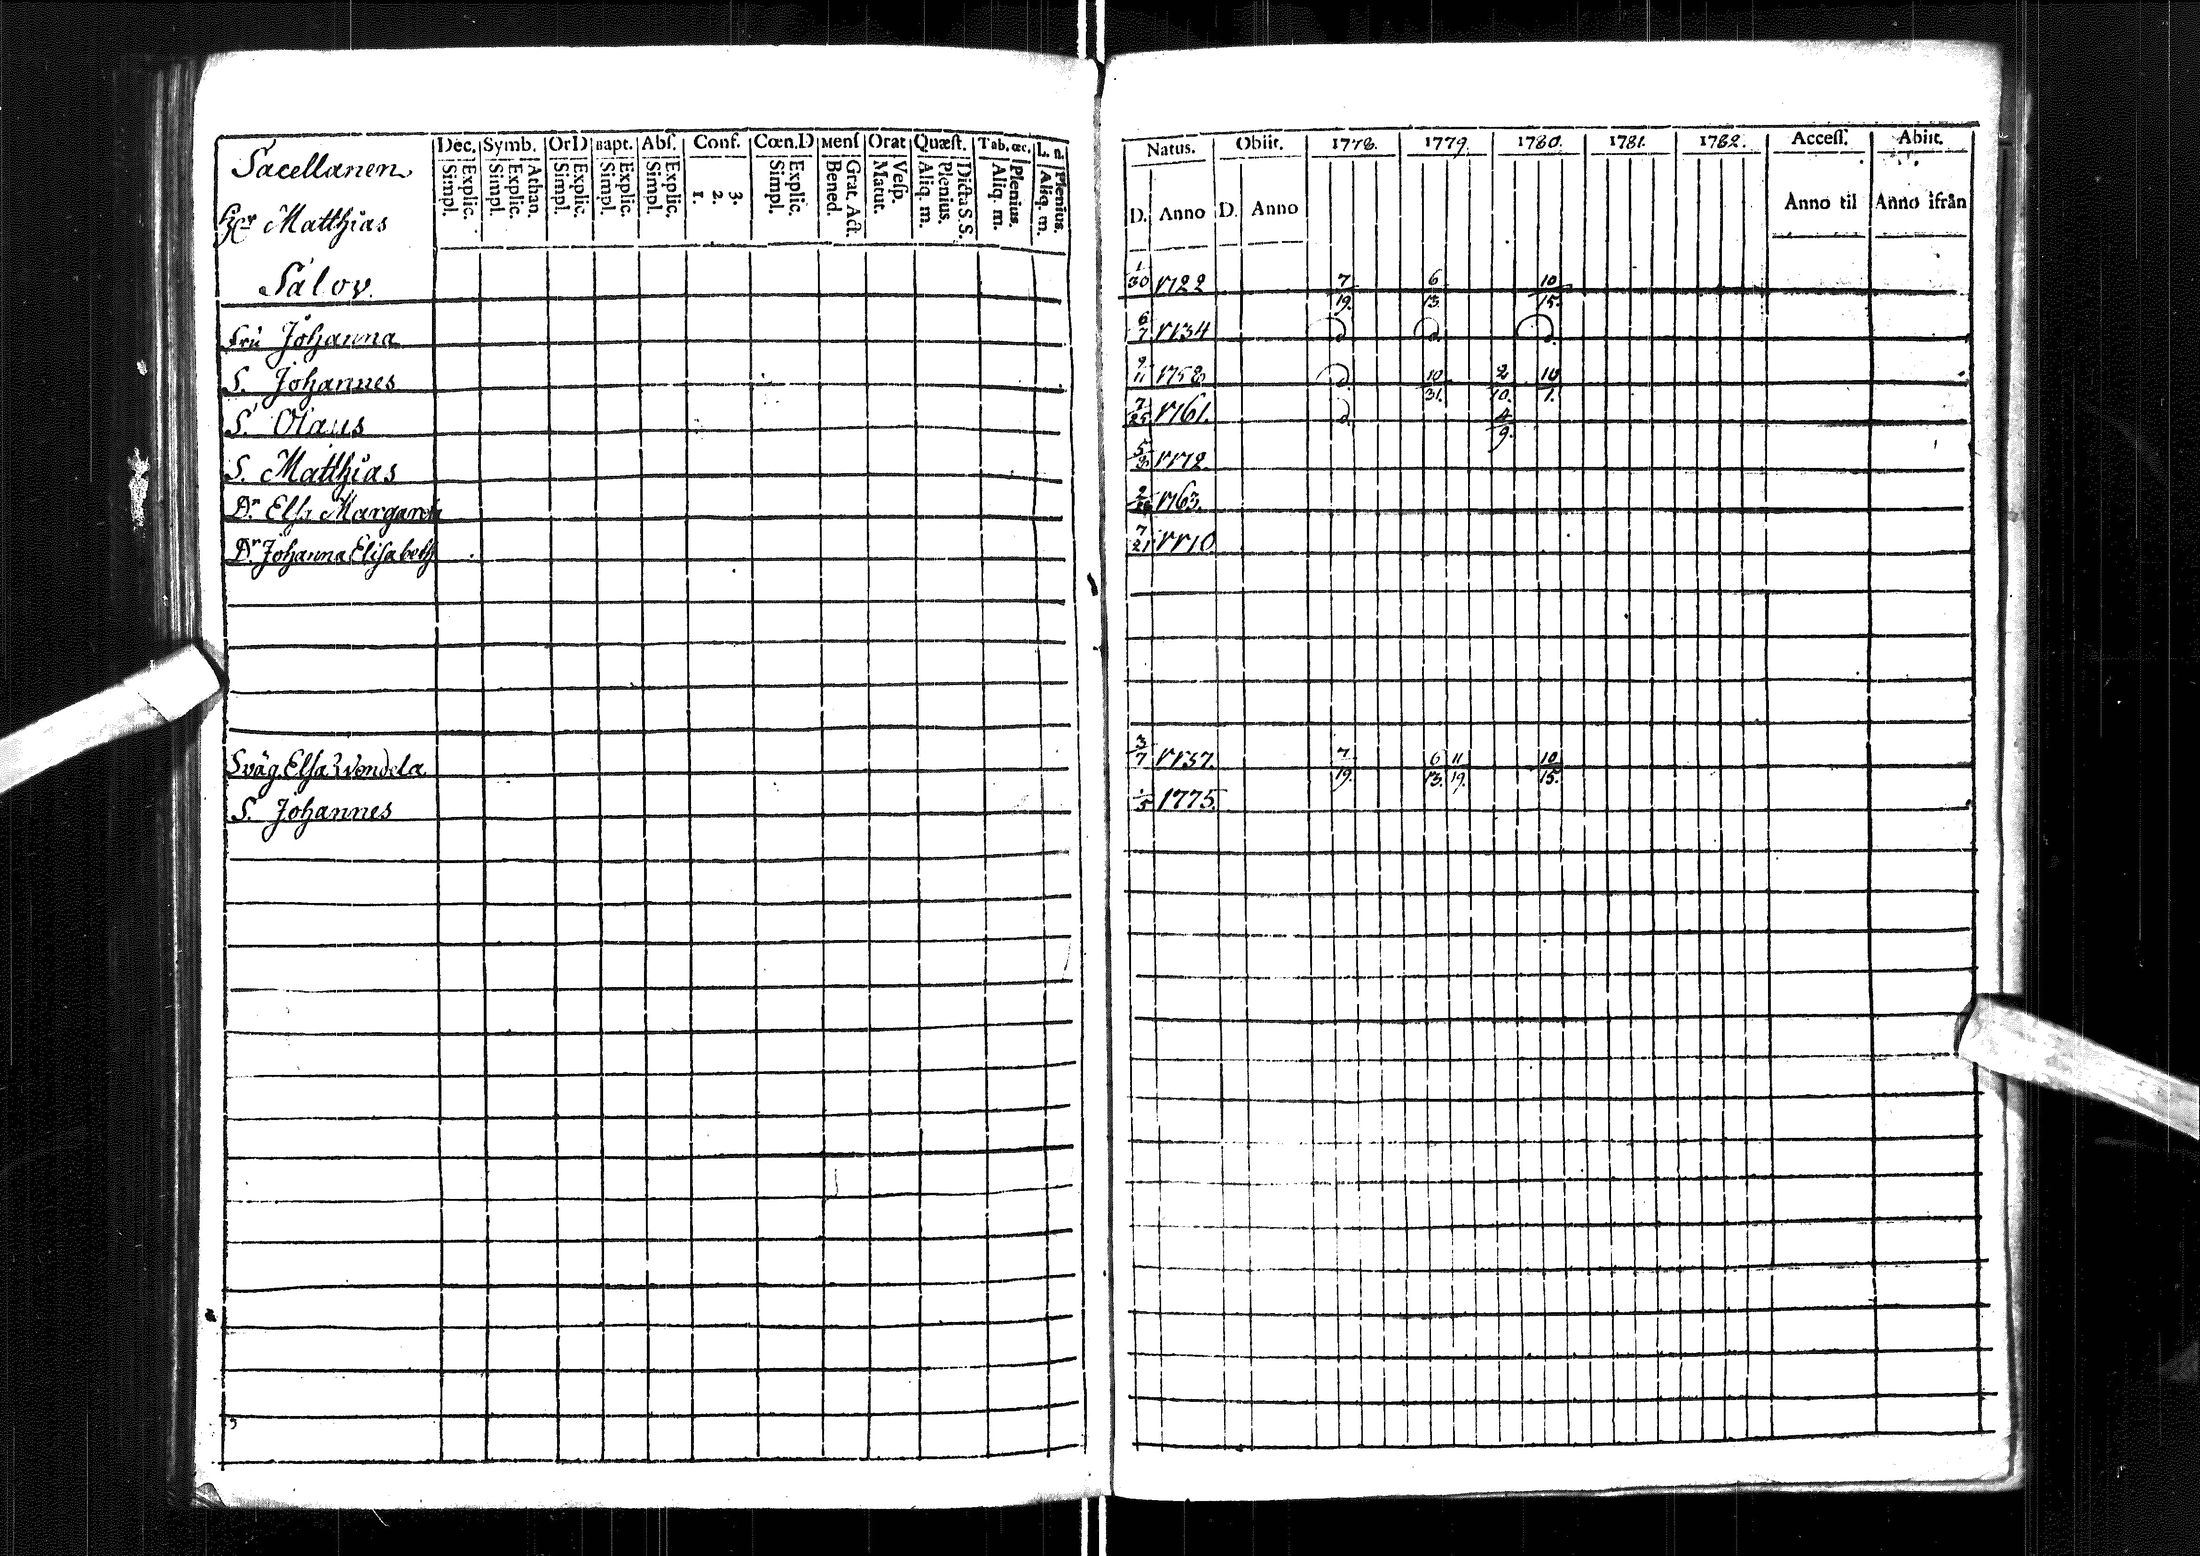 Sacellanen
Hr Matthias
Salov.
Dec. Symb. OrD Bapt. Abſ. Conf. Cœn.D Menſ Orat Quæſt. Tab. œc. L. n.
Explic. Simpl. Athan. Explic. Simpl. Explic. Simpl. Explic. Simpl. Explic. Simpl. 3. 2. 1. Explic. Simpl. Grat. Act. Bened. Veſp. Matut. Dicta S. S. Plenius. Aliq. m. Plenius. Aliq. m. Plenius. Aliq. m.
Fru Johanna
S. Johannes
S. Olaus
S. Matthias
Dr Elsa Margareta
Dr Johanna Elisabeth
Sväg. Elsa Wendela
S. Johannes
Natus. Obiit. 1778. 1779. 1780. 1781. 1782. Acceſſ. Abiit.
D. Anno D. Anno Anno til Anno ifrån
1/30 1722 7/19. 6/13. 10/15.
6/7 1734
1758 10/31. 2/10. 10/1.
7/25 1761. 4/9.
5/3 1772.
1763.
7/21 1770
3/7 1737. 7/19. 6/13. 11/19. 10/15.
1775.